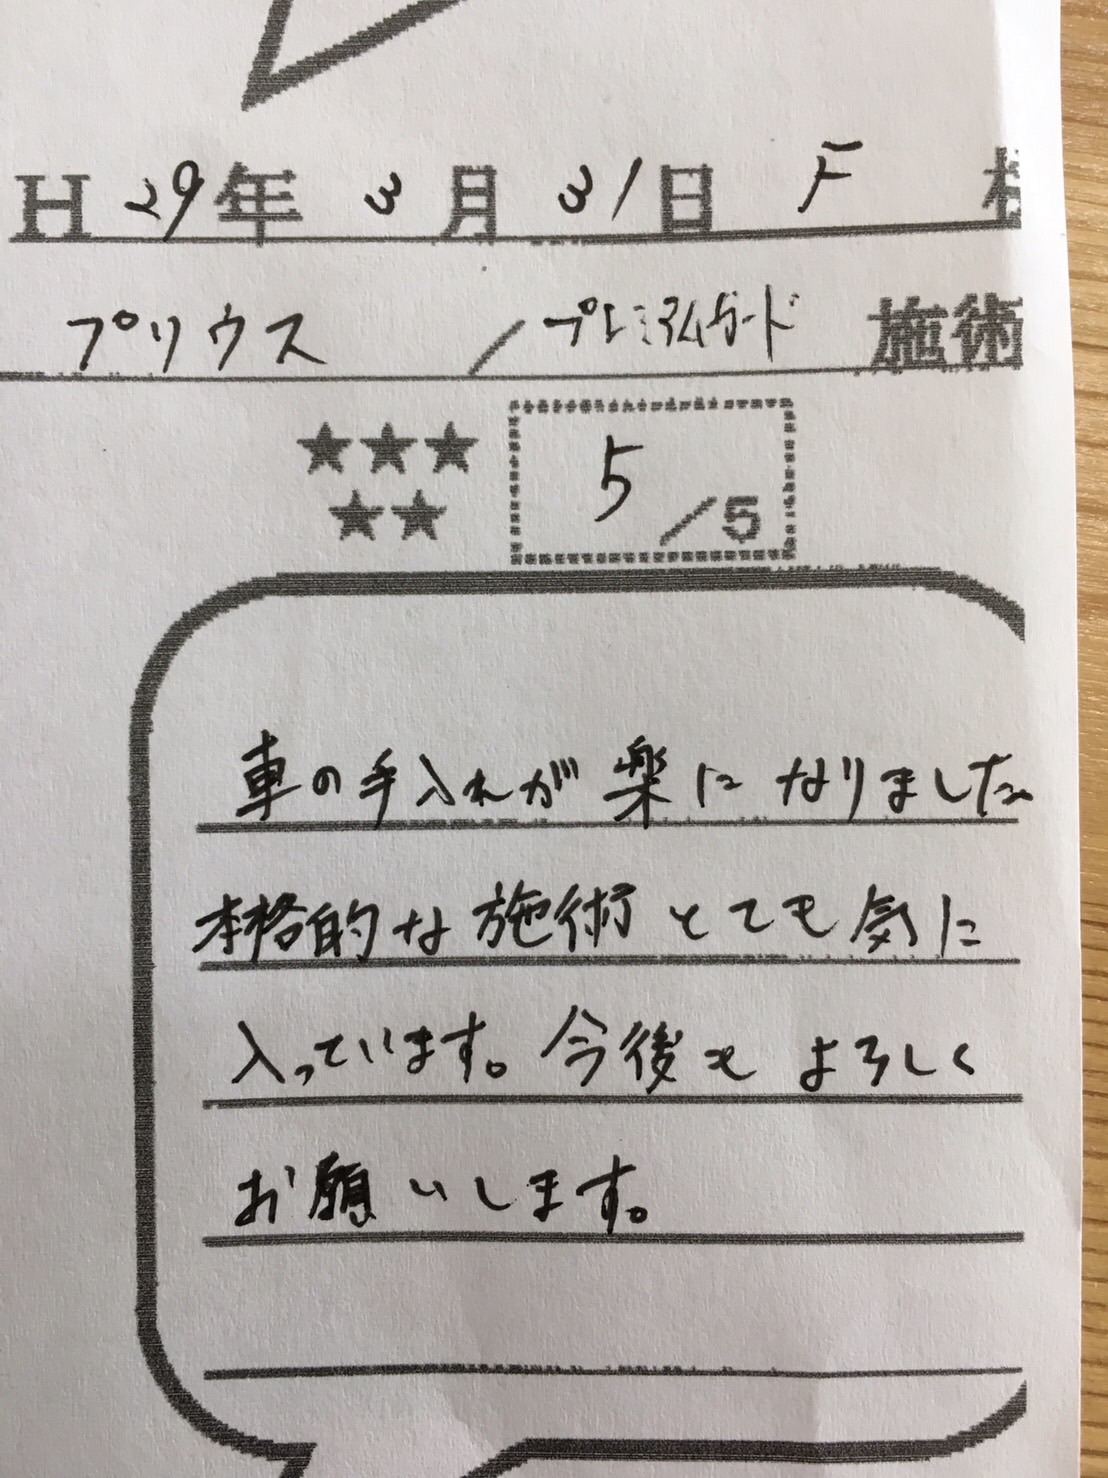 H 29年 3月 31日 F 様
プリウス / プレミアムガード 施術
★★★
★★
5/5
車の手入れが楽になりました
本格的な施術とても気に
入っています。今後もよろしく
お願いします。